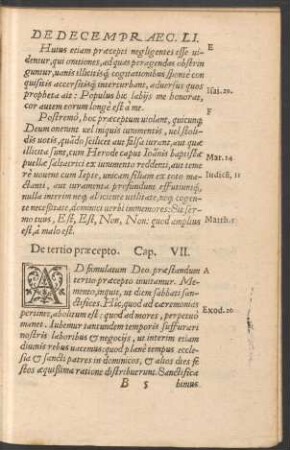 DE DECEM PRAEC. LI.
Huius etiam præcepti negligentes esse ui- E
dentur, qui omitiones, ad quas peragendas obstrin
guntur, uanis illicitisq́; cogitationibus sponte con
quisitis accersitisq́; interturbant, aduersus quos
propheta ait: Populus hic labijs me honorat, Isai.29.
cor autem eorum longè est à me.
Postremò, hoc præceptum uiolant, quicunq́; F
Deum onerant uel iniquis iuramentis, uel stoli-
dis uotis, quādo scilicet aut falsa iurant, aut quæ
illicita sunt, cum Herode caput Ioānis baptistæ Mar.14.
puellæ saltatrici ex iuramento reddenti, aut teme
rè uouent cum Iepte, unicam filiam ex uoto ma- Iudicũ. 11
ctanti, aut iuramenta profundunt effutiuntq́;
nulla interim neq́; alienæ utilitatis, nec cogente ne
cessitate, dominici uerbi immemores: Sit ser-
mo tuus, Est, Est, Non, Non: quod amplius Matth.5.
est, à malo est.
De tertio præcepto. Cap. VII.
AD famulatum Deo præstandum A
tertio præcepto inuitamur. Me-
mento, inquit, ut diem sabbati san-
ctifices. Hic, quod ad cæremonias Exod.20.
pertinet, abolitum est: quod ad mores, perpetuò
manet. Iubemur tantundem temporis suffurari
nostris laboribus & negocijs, ut interim etiam
diuinis rebus uacemus: quod planè tempus eccle-
sia & sancti patres in dominicos, & alios dies fe
stos æquissima ratione distribuerunt. Sanctifica
B 5 bimus